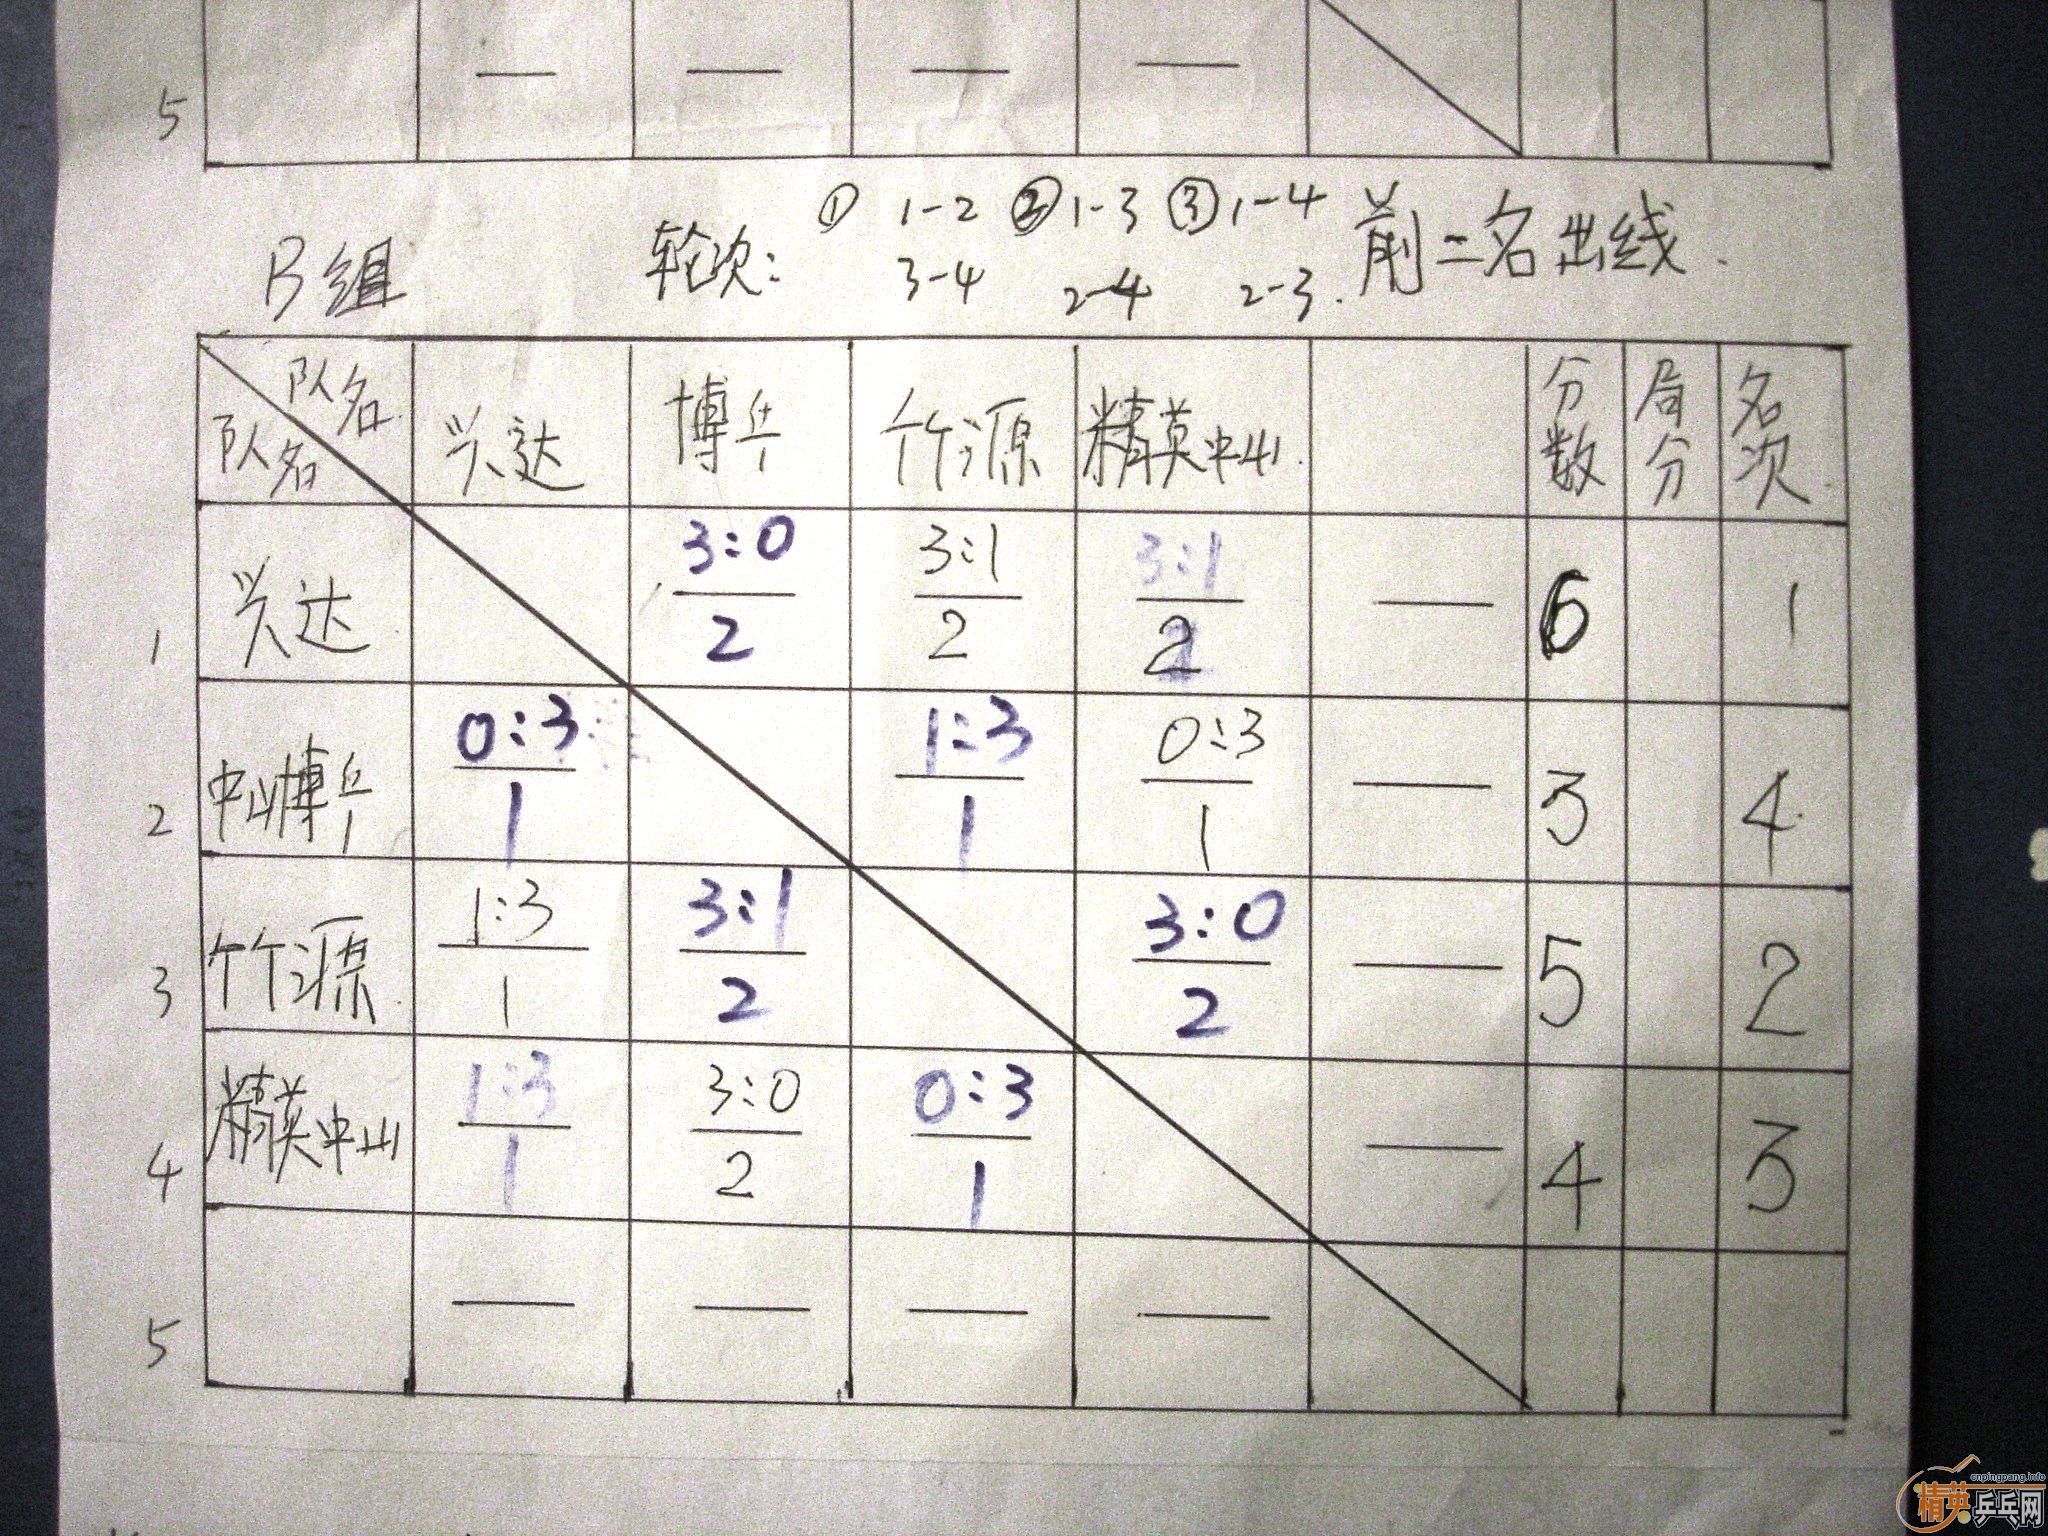 5
B组 轮次: ① 1-2 ② 1-3 ③ 1-4 前二名出线.
3-4 2-4 2-3.
队名
队名 兴达 博乒 竹源 精英中山. 分数 局分 名次
1 兴达 3:0 3:1 3:1 6 1
2 2 2
2 中山博乒 0:3 1:3 0:3 3 4
1 1 1
3 竹源 1:3 3:1 3:0 5 2
1 2 2
4 精英中山 1:3 3:0 0:3 4 3
1 2 1
5
cnpingpang.info
精英乒乓网